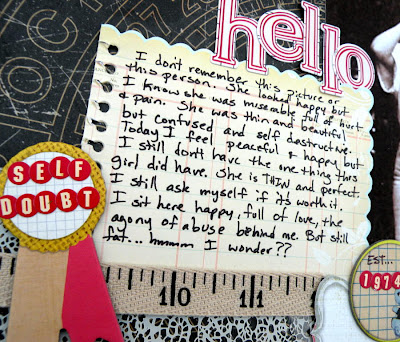 hello
I don't remember this picture or
this person. She looked happy but
I know she was miserable full of hurt
& pain. She was thin and beautiful
but confused and self destructive.
Today I feel peaceful & happy but
I still don't have the one thing this
girl did have. She is THIN and perfect.
I still ask myself if it's worth it.
I sit here happy, full of love, the
agony of abuse behind me. But still
fat... hmmm I wonder??
SELF
DOUBT
EST...
1974
10 11